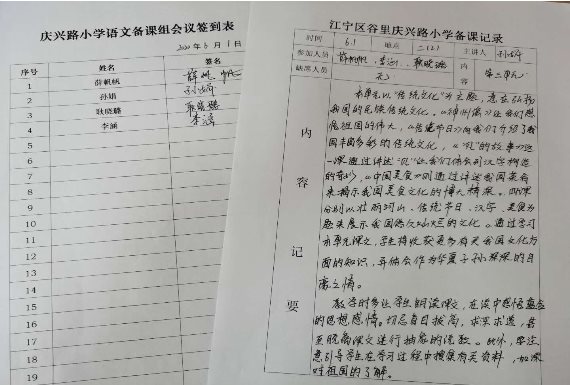 庆兴路小学语文备课组会议签到表
2020年6月1日
序号 姓名 签名
1 薛帆帆 薛帆帆
2 孙娟 孙娟
3 耿晓璐 耿晓璐
4 李涵 李涵
5
6
7
8
9
10
11
12
13
14
15
16
17
18
19
江宁区谷里庆兴路小学备课记录
时间 6.1 地点 二(2) 主讲人 孙娟
参加人员 薛帆帆、李涵、耿晓璐
缺席人员 无
内容 第三单元
内容记要
本单元以“传统文化”为主题,意在弘扬
我国的民族传统文化。《神州谣》让我们感
悟祖国的伟大,《传统节日》向我们介绍了我
国丰富多彩的传统文化,《“贝”的故事》这
一课通过讲述“贝”让我们体会到汉字构造
的奇妙,《中国美食》则通过讲述我国美食
来揭示我国美食文化的博大精深。四课
分别以壮丽河山、传统节日、汉字、美食为
题来展示我国悠久灿烂的文化。通过学习
本单元课文,学生将收获更多有关我国文化方
面的知识,再体会作为华夏子孙深深的自
豪之情。
教学时多让学生朗读课文,在读中感悟蕴含
的思想感情。切忌盲目拔高,求深求透,甚
至脱离课文进行抽象的说教。此外,要注
意引导学生在学习过程中搜集有关资料,加深
对祖国的了解。